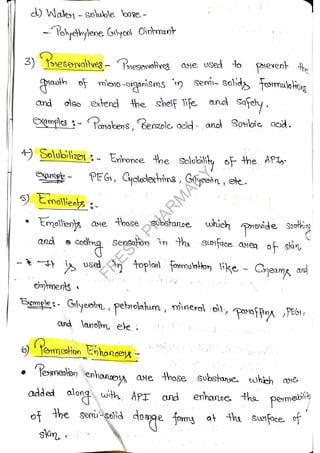 d) Water - soluble base -
- Polyethylene Glycol Ointment
3) Preservatives - Preservatives are used to prevent the
growth of micro-organisms in semi-solids formulations
and also extend the shelf life and safety.
Examples :- Parabens, Benzoic acid. and Sorbic acid.
4) Solubilizer :- Enhance the solubility of the APIs.
Example - PEG, Cyclodextrins, Glycerin, etc.
5) Emollients :-
• Emollients are those substance which provide soothing
and cooling sensation in the surface area of skin
- * It is used in topical formulation like - Creams and
ointments.
Example :- Glycerin, petrolatum, mineral oil, paraffins, PEG,
and lanolin etc :
6) Permeation Enhancers -
• Permeation enhancers are those substance which are
added along with API and enhance the permeability
of the semi-solid dosage forms at the surface of
skin.
FRESH PHARMACY